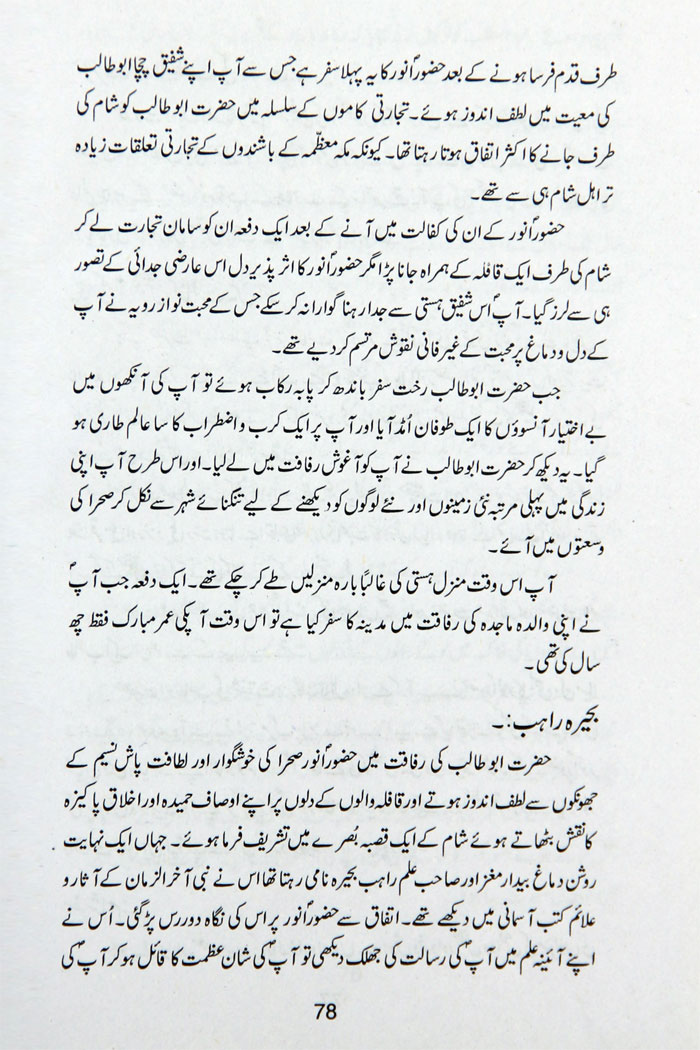 طرف قدم فرسا ہونے کے بعد حضورؐ انور کا یہ پہلا سفر ہے جس سے آپ اپنے شفیق چچا ابو طالب
کی معیت میں لطف اندوز ہوئے۔ تجارتی کاموں کے سلسلہ میں حضرت ابو طالب کو شام کی
طرف جانے کا اکثر اتفاق ہوتا رہتا تھا۔ کیونکہ مکہ معظّمہ کے باشندوں کے تجارتی تعلقات زیادہ
تر اہل شام ہی سے تھے۔
حضورؐ انور کے ان کی کفالت میں آنے کے بعد ایک دفعہ ان کو سامان تجارت لے کر
شام کی طرف ایک قافلہ کے ہمراہ جانا پڑا مگر حضورؐ انور کا اثر پذیر دل اس عارضی جدائی کے تصور
ہی سے لرز گیا۔ آپؐ اس شفیق ہستی سے جدا رہنا گوارا نہ کر سکے جس کے محبت نواز رویہ نے آپ
کے دل و دماغ پر محبت کے غیر فانی نقوش مرتسم کر دیے تھے۔
جب حضرت ابو طالب رخت سفر باندھ کر پا بہ رکاب ہوئے تو آپ کی آنکھوں میں
بے اختیار آنسوؤں کا ایک طوفان اُمڈ آیا اور آپ پر ایک کرب و اضطراب کا سا عالم طاری ہو
گیا۔ یہ دیکھ کر حضرت ابو طالب نے آپ کو آغوش رفاقت میں لے لیا۔ اور اس طرح آپ اپنی
زندگی میں پہلی مرتبہ نئی زمینوں اور نئے لوگوں کو دیکھنے کے لیے تنگنائے شہر سے نکل کر صحرا کی
وسعتوں میں آئے۔
آپ اس وقت منزل ہستی کی غالباً بارہ منزلیں طے کر چکے تھے۔ ایک دفعہ جب آپؐ
نے اپنی والدہ ماجدہ کی رفاقت میں مدینہ کا سفر کیا ہے تو اس وقت آپکی عمر مبارک فقط چھ
سال کی تھی۔
بحیرہ راہب:۔
حضرت ابو طالب کی رفاقت میں حضورؐ انور صحرا کی خوشگوار اور لطافت پاش نسیم کے
جھونکوں سے لطف اندوز ہوتے اور قافلہ والوں کے دلوں پر اپنے اوصاف حمیدہ اور اخلاق پاکیزہ
کا نقش بٹھاتے ہوئے شام کے ایک قصبہ بُصرے میں تشریف فرما ہوئے۔ جہاں ایک نہایت
روشن دماغ بیدار مغز اور صاحب علم راہب بحیرہ نامی رہتا تھا اس نے نبی آخر الزمان کے آثار و
علائم کتب آسمانی میں دیکھے تھے۔ اتفاق سے حضورؐ انور پر اس کی نگاہ دوررس پڑ گئی۔ اُس نے
اپنے آئینہ علم میں آپؐ کی رسالت کی جھلک دیکھی تو آپؐ کی شان عظمت کا قائل ہو کر آپؐ کی
78